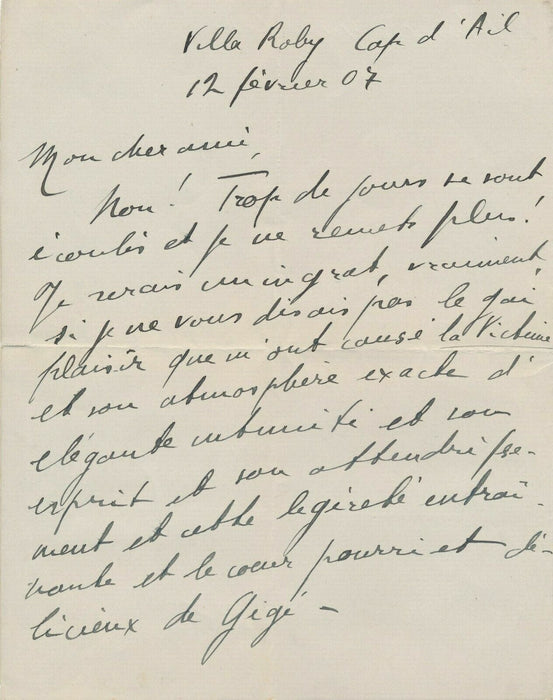 Villa Roby Cap d'Ail
12 février 07
Mon cher ami,
Non! Trop de jours se sont
écoulés et je ne remets plus!
Je serais un ingrat, vraiment,
si je ne vous disais pas le gai
plaisir que m'ont causé la Victime
et son atmosphère exacte d'
élégante intimité et son
esprit et son attendrisse-
ment et cette légèreté entraî-
nante et le cœur pourri et dé-
licieux de Gigé -